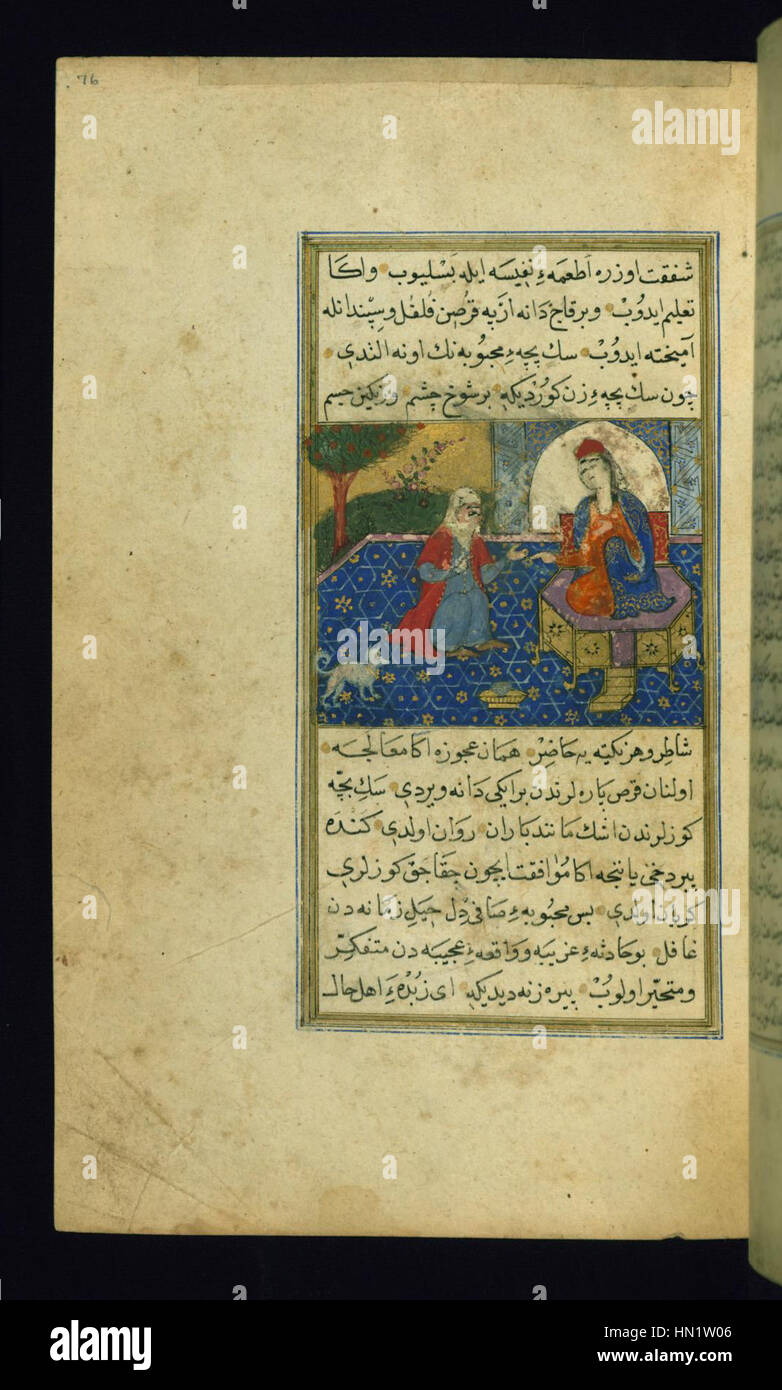 76
شفقت اوزره اطعمهٔ نفیسه ایله بسلیوب واکا
تعلیم ایدوب وبرقاچ دانه آرپه قرصن فلفل وسپندانله
آمیخته ایدوب سك بچهٔ محبوبه نك اونه الندی
چون سك بچهٔ زن کوردیکه برشوخ چشم ورنکین جسم
شاطر وهر نکته یه حاضر همان عجوزه اکا معالجه
اولنان قرص پاره لرندن برایکی دانه ویردی سك بچه
کوزلرندن اشك مانند باران روان اولدی کنده
پیر دخی یاننجه اکا موافقت ایچون جقاجق کوزلری
کریان اولدی پس محبوبهٔ صافی دل حیل زمانه دن
غافل بو حادثهٔ غریبه وواقعهٔ عجیبه دن متفکر
ومتحیر اولوب پیره زنه دیدیکه ای زبدهٔ اهل حال
a alamy stock photo
HN1W06
www.alamy.com